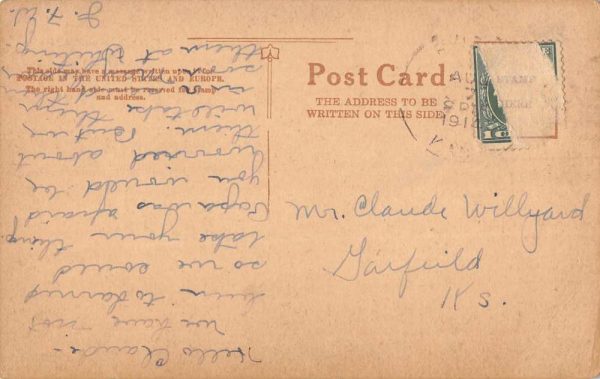 This side may have a message written upon it for
POSTAGE IN THE UNITED STATES AND EUROPE.
The right hand side must be reserved for stamp
and address.
Post Card
THE ADDRESS TO BE
WRITTEN ON THIS SIDE
STAMP
HERE
191
KAN
1
Mr. Claude Willyard
Garfield
Ks.
Hello Claude -
we have not
been to Larned
so we could
take your things
Papa was afraid
you would be
worried about
them. But we
will take them
in
so
them at Whiting.
J. F. W.